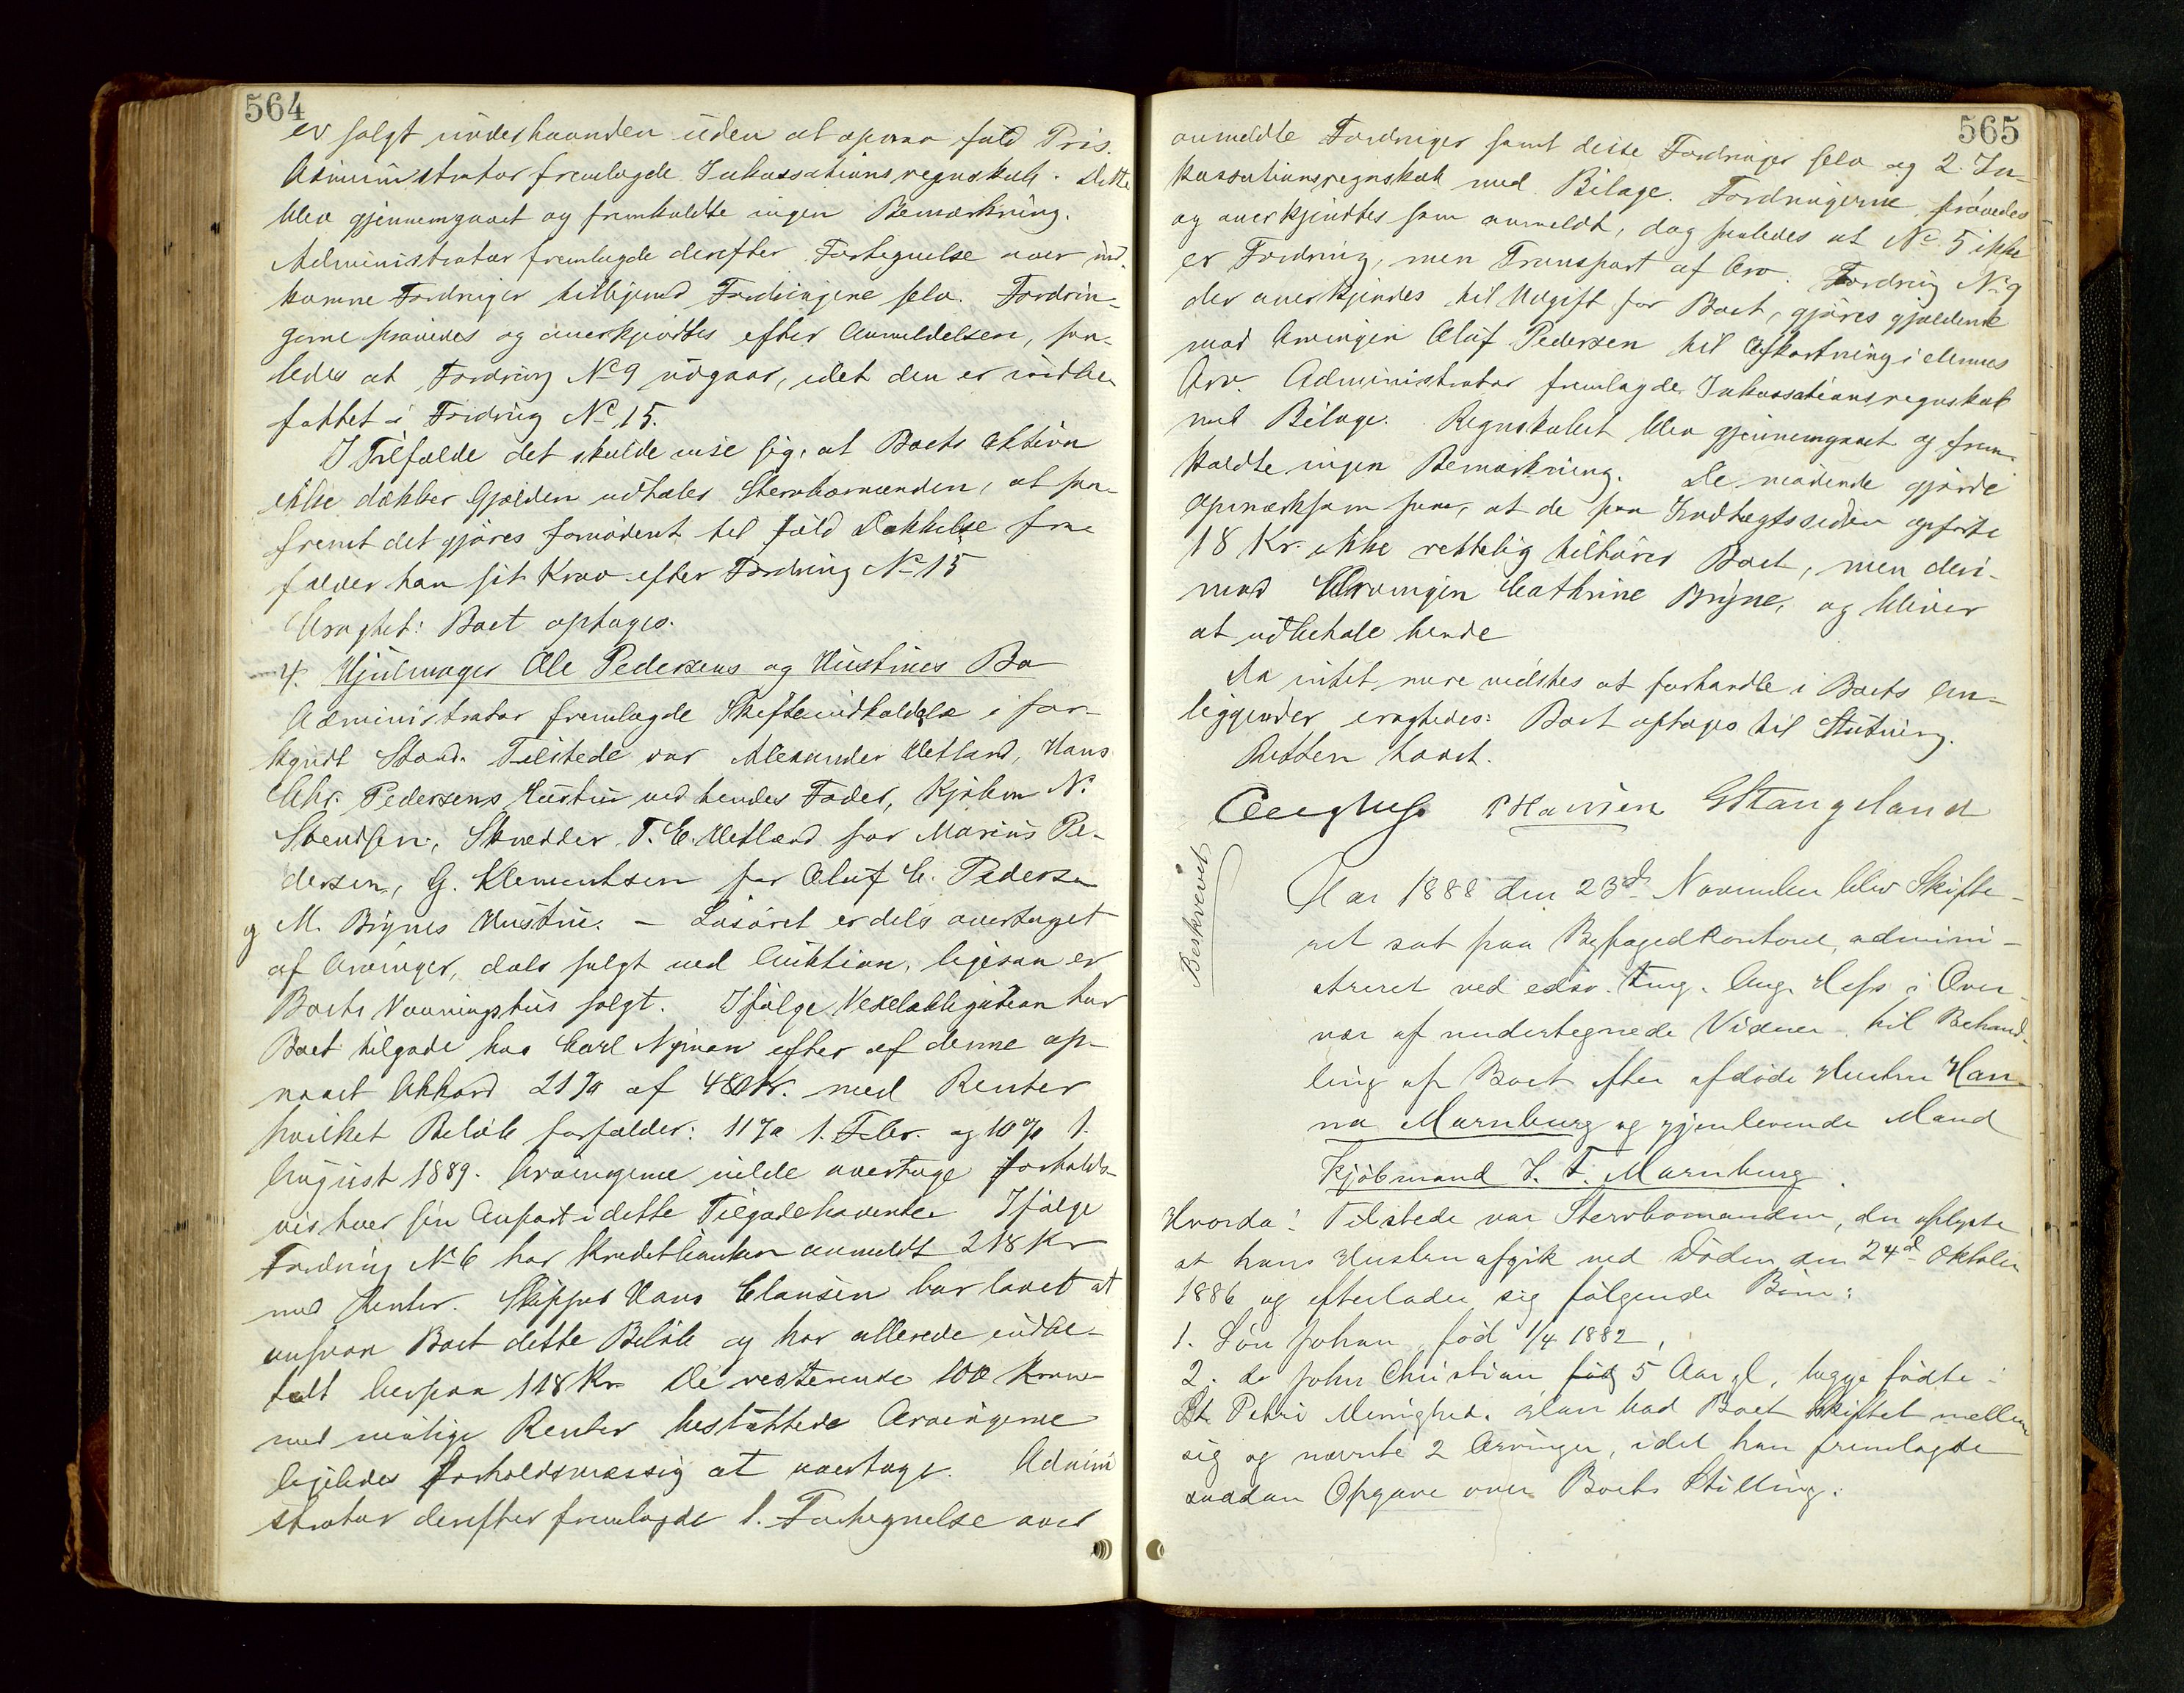 564
er solgt underhaanden uden at opnaa fuld Pris.
Administrator fremlagde Inkassationsregnskab. Dette
blev gjennemgaaet og fremkaldte ingen Bemærkning.
Administrator fremlagde derefter Fortegnelse over ind-
komne Fordringer tilligemed Fordringerne selv. Fordrin-
gerne prøvedes og anerkjendtes efter Anmeldelsen, saa-
ledes at Fordring No 9 udgaar, idet den er indbe-
fattet i Fordring No 15.
I Tilfælde det skulde vise sig, at Boets Aktiva
ikke dækker Gjælden udtaler Stervbomanden, at saa-
fremt det gjøres fornødent til fuld Dækkelse fra-
falder han sit Krav efter Fordring No 15
Eragtet: Boet optages.
4. Hjulmager Ole Pedersens og Hustrues Bo
Administrator fremlagde Skifteindkaldelse i for-
kyndt Stand. Tilstede var Alexander Hetland, Hans
Chr. Pedersens Hustru ved hendes Fader, Kjøbm N.
Svendsen, Skrædder T. E. Hetland for Marius Pe-
dersen, G. Klementsen for Oluf C. Pedersen
og M. Brynes Hustru. – Løsøret er dels overtaget
af Arvinger, dels solgt ved Auktion, ligesom er
Boets Vaaningshus solgt. Ifølge Vexelobligation har
Boet tilgode hos Carl Nyman efter af denne op-
naaet Akkord 21 % af 480 Kr. med Renter
hvilket Beløb forfalder: 11 % 1. Febr. og 10 % 1.
August 1889. Arvingerne vilde overtage forholds-
vis hver sin Anpart i dette Tilgodehavende. Ifølge
Fordring No 6 har Kreditbanken anmeldt 218 Kr
med Renter. Skipper Hans Clausen har lovet at
anspare Boet dette Beløb og har allerede indbe-
talt herpaa 118 Kr. De resterende 100 Kroner
med mulige Renter besluttede Arvingerne
ligeledes forholdsmæssig at overtage. Admini
strator derefter fremlagde 1. Fortegnelse over
565
anmeldte Fordringer samt disse Fordringer selv og 2. In-
kassationsregnskab med Bilage. Fordringerne prøvedes
og anerkjendtes som anmeldt, dog saaledes at No 5 ikke
er Fordring, men Transport af Arv. Fordring No 9
der anerkjendes til Udgift for Boet, gjøres gjældende
mod Arvingen Oluf Pedersen til Afkortning i dennes
Arv. Administrator fremlagde Inkassationsregnskab
med Bilage. Regnskabet blev gjennemgaaet og frem-
kaldte ingen Bemærkning. De mødende gjorde
opmærksom paa, at de paa Indtægtssiden opførte
18 Kr. ikke rettelig tilhører Boet, men deri-
mod Arvingen Cathrine Bryne, og bliver
at udbetale hende
Da intet mere vidstes at forhandle i Boets An-
liggender eragtedes: Boet optages til Slutning.
Retten hævet.
Aug Hess P Hansen G Stangeland
Beskrevet
Aar 1888 den 23de November blev Skifte-
ret sat paa Byfogedkontoret, admini-
streret ved edsv. fmg. Aug. Hess i Over-
vær af undertegnede Vidner til Behand-
ling af Boet efter afdøde Hustru Han-
na Marnburg og gjenlevende Mand
Kjøbmand J. T. Marnburg.
Hvorda: Tilstede var Stervbomanden, der oplyste
at hans Hustru afgik ved Døden den 24de Oktober
1886 og efterlader sig følgende Børn:
1. Søn Johan, født 1/4 1882,
2. do John Christian, født 5 Aar gl, begge fødte i
St. Petri Menighed. Han bad Boet skiftet mellem
sig og nævnte 2 Arvinger, idet han fremlagde
saadan Opgave over Boets Stilling: